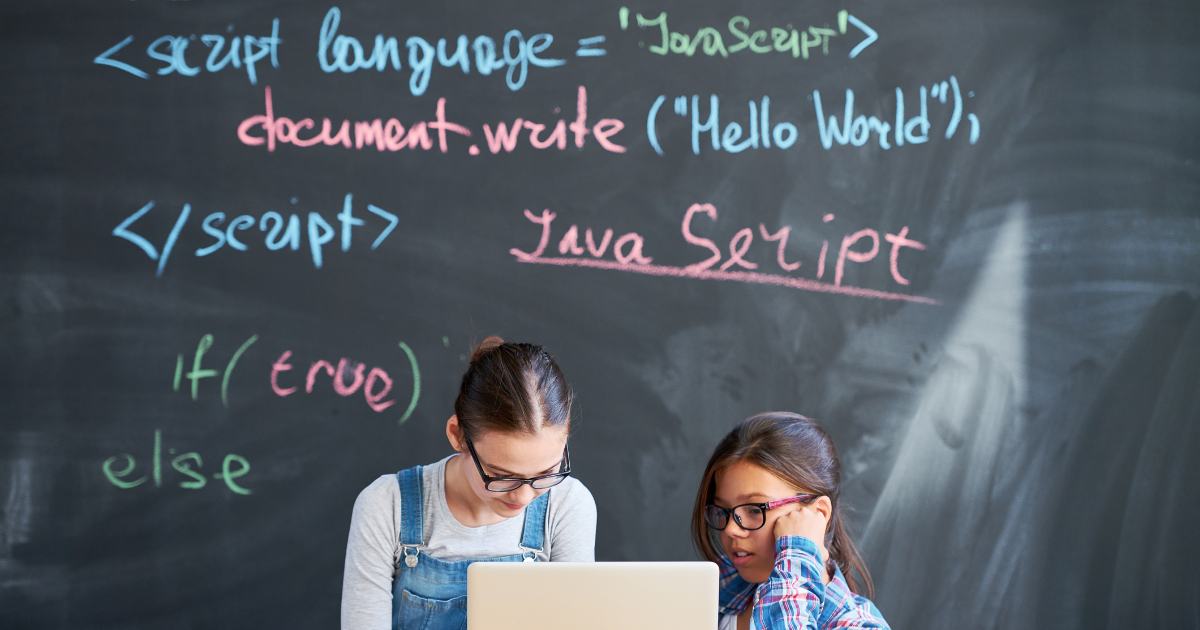 <script language = 'JavaScript'>
document.write ("Hello World");
</script>
Java Script
if( true )
else